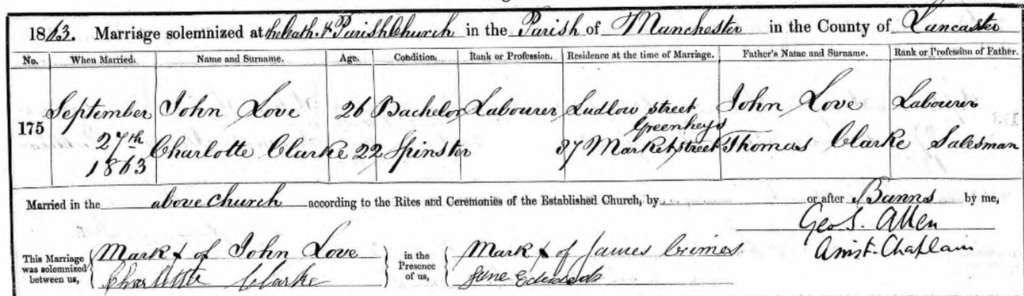 1863. Marriage solemnized at Cath. & Parish Church in the Parish of Manchester in the County of Lancaster
No. When Married. Name and Surname. Age. Condition. Rank or Profession. Residence at the time of Marriage. Father's Name and Surname. Rank or Profession of Father.
175 September 27th 1863
John Love 26 Bachelor Labourer Ludlow street Greenheys John Love Labourer
Charlotte Clarke 22 Spinster 37 Market street Thomas Clarke Salesman
Married in the above church according to the Rites and Ceremonies of the Established Church, by or after Banns by me,
Geo. S. Allen
Assist. Chaplain
This Marriage was solemnized between us,
Mark x of John Love
Charlotte Clarke
in the Presence of us,
Mark x of James Grimes
Jane Edwards